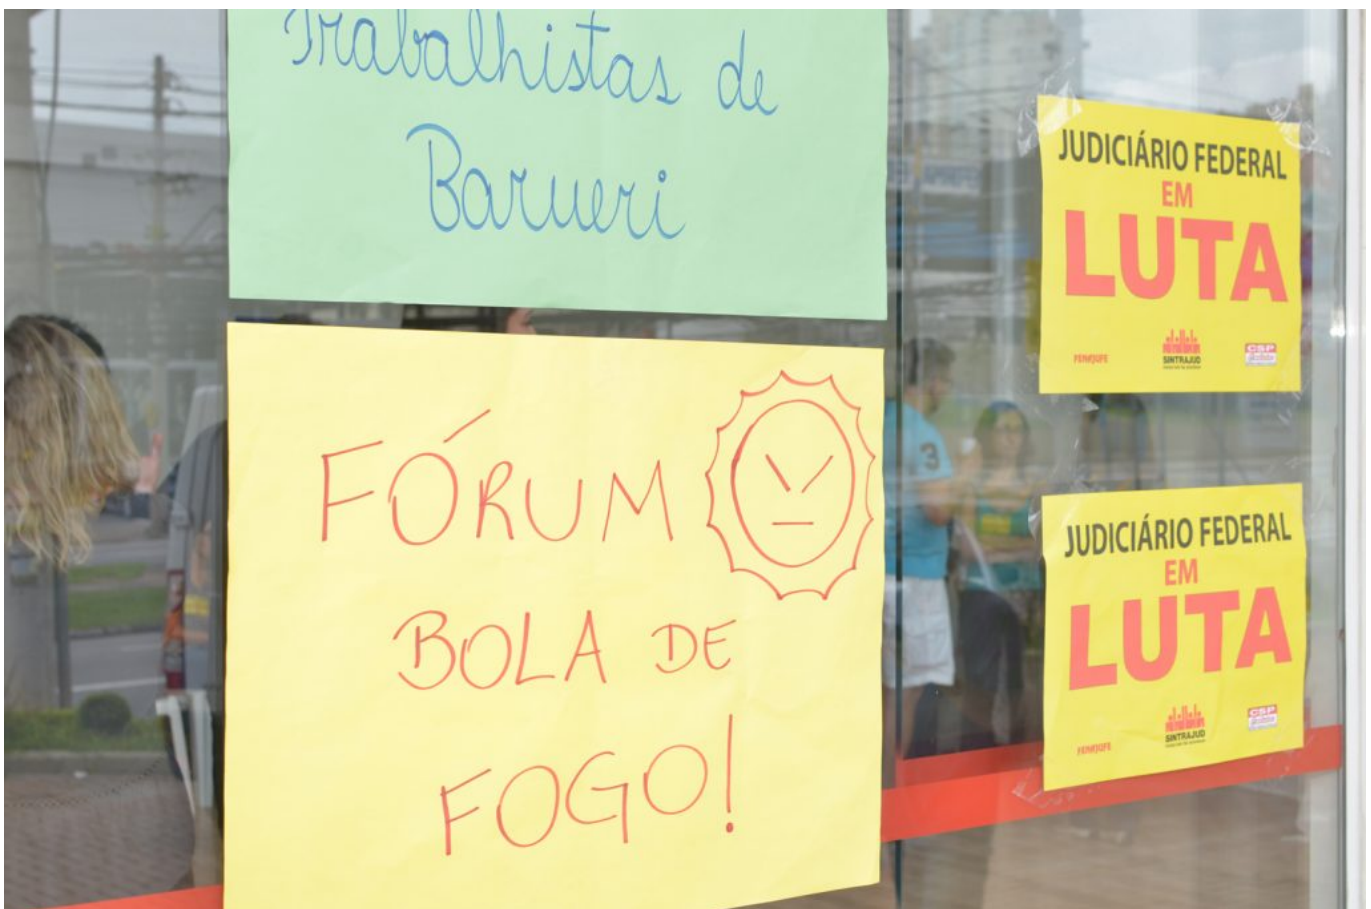 Trabalhistas de
Barueri
FÓRUM
BOLA DE
FOGO!
JUDICIÁRIO FEDERAL
EM
LUTA
FENAJUFE
SINTRAJUD
CSP
JUDICIÁRIO FEDERAL
EM
LUTA
FENAJUFE
SINTRAJUD
CSP
3